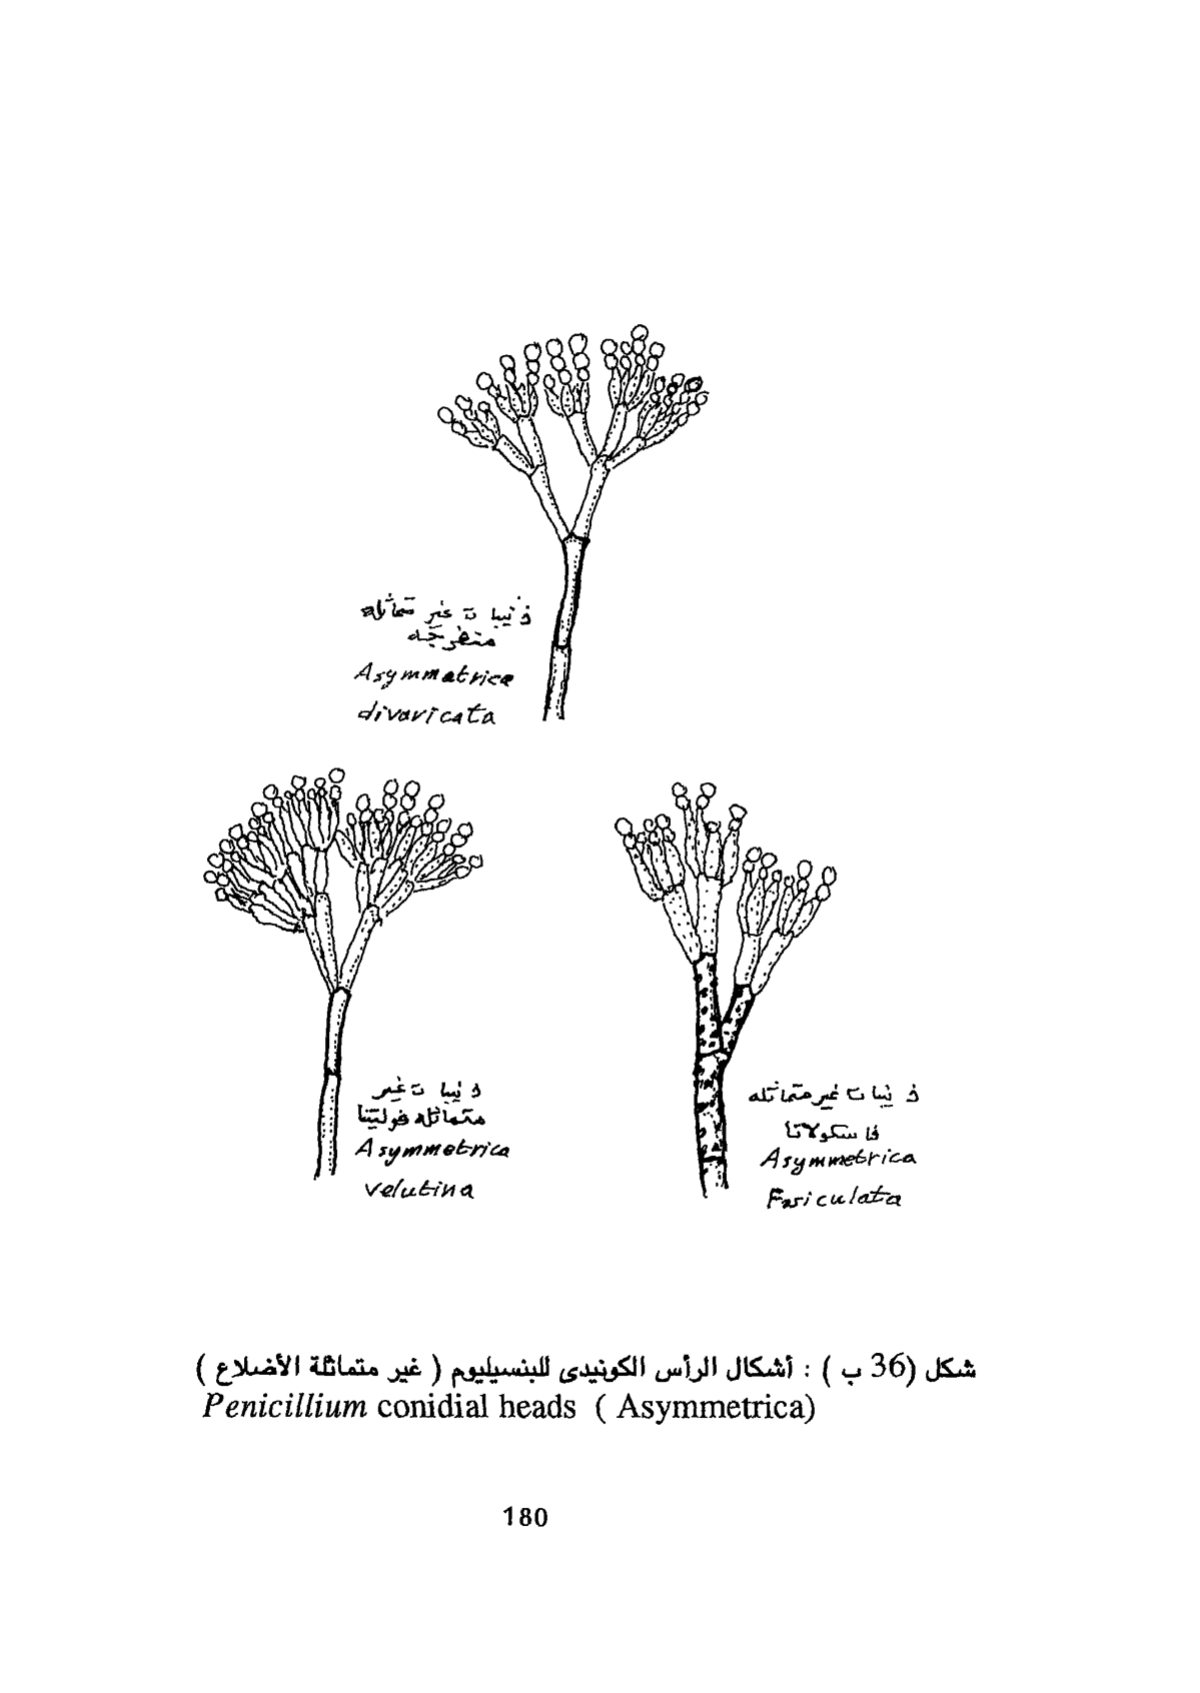 ذنيبات غير متماثله
منفرجه
Asymmetrica
divaricata
ذنيبات غير
متماثله فولتينا
Asymmetrica
velutina
ذنيبات غير متماثله
فاسكولاتا
Asymmetrica
Fasiculata
شكل (36 ب ) : أشكال الرأس الكونيدى للبنسيليوم ( غير متماثلة الأضلاع )
Penicillium conidial heads ( Asymmetrica)
180